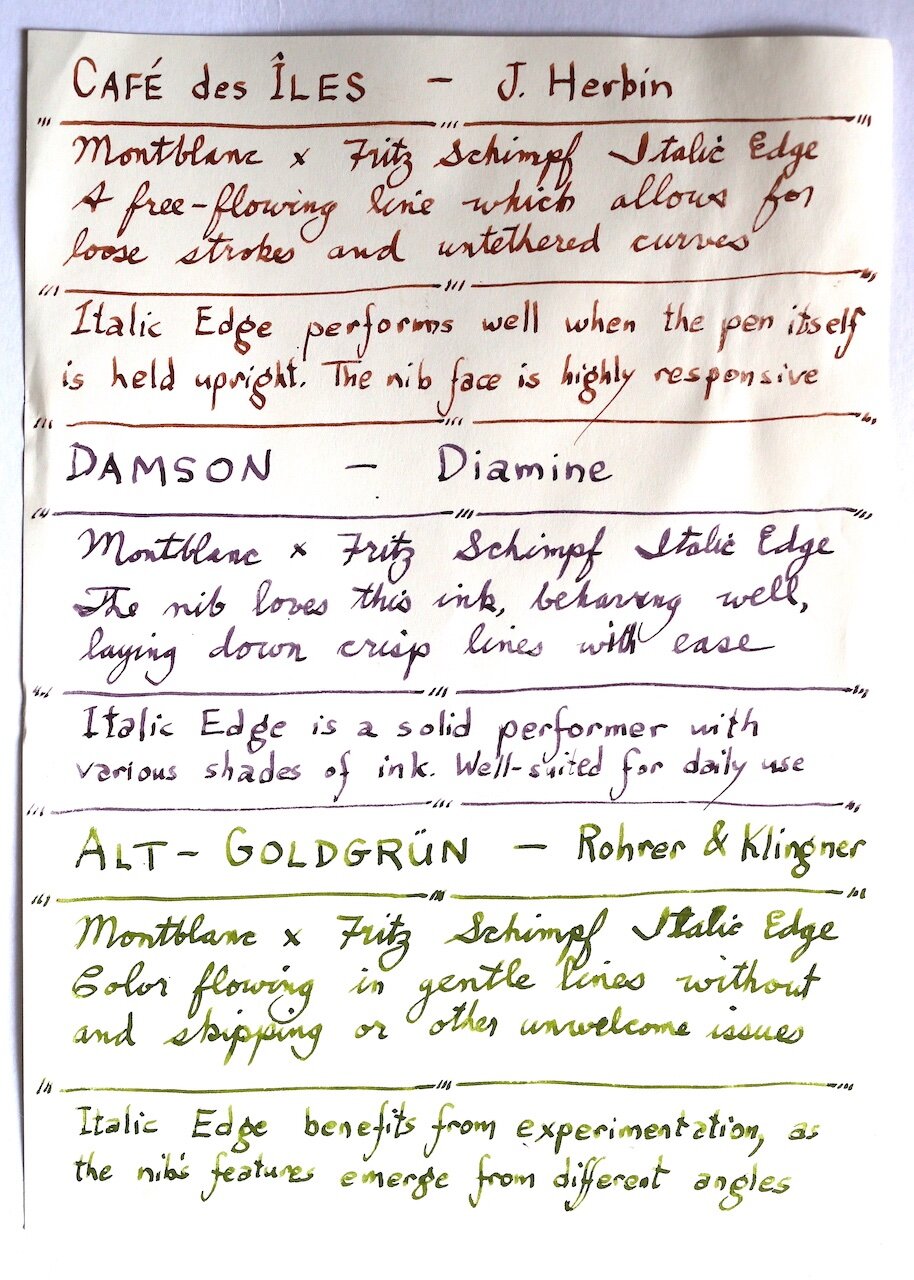 CAFÉ des ÎLES – J. Herbin
Montblanc x Fritz Schimpf Italic Edge
A free-flowing line which allows for
loose strokes and untethered curves
Italic Edge performs well when the pen itself
is held upright. The nib face is highly responsive
DAMSON – Diamine
Montblanc x Fritz Schimpf Italic Edge
The nib loves this ink, behaving well,
laying down crisp lines with ease
Italic Edge is a solid performer with
various shades of ink. Well-suited for daily use
ALT-GOLDGRÜN – Rohrer & Klingner
Montblanc x Fritz Schimpf Italic Edge
Color flowing in gentle lines without
and skipping or other unwelcome issues
Italic Edge benefits from experimentation, as
the nib's features emerge from different angles